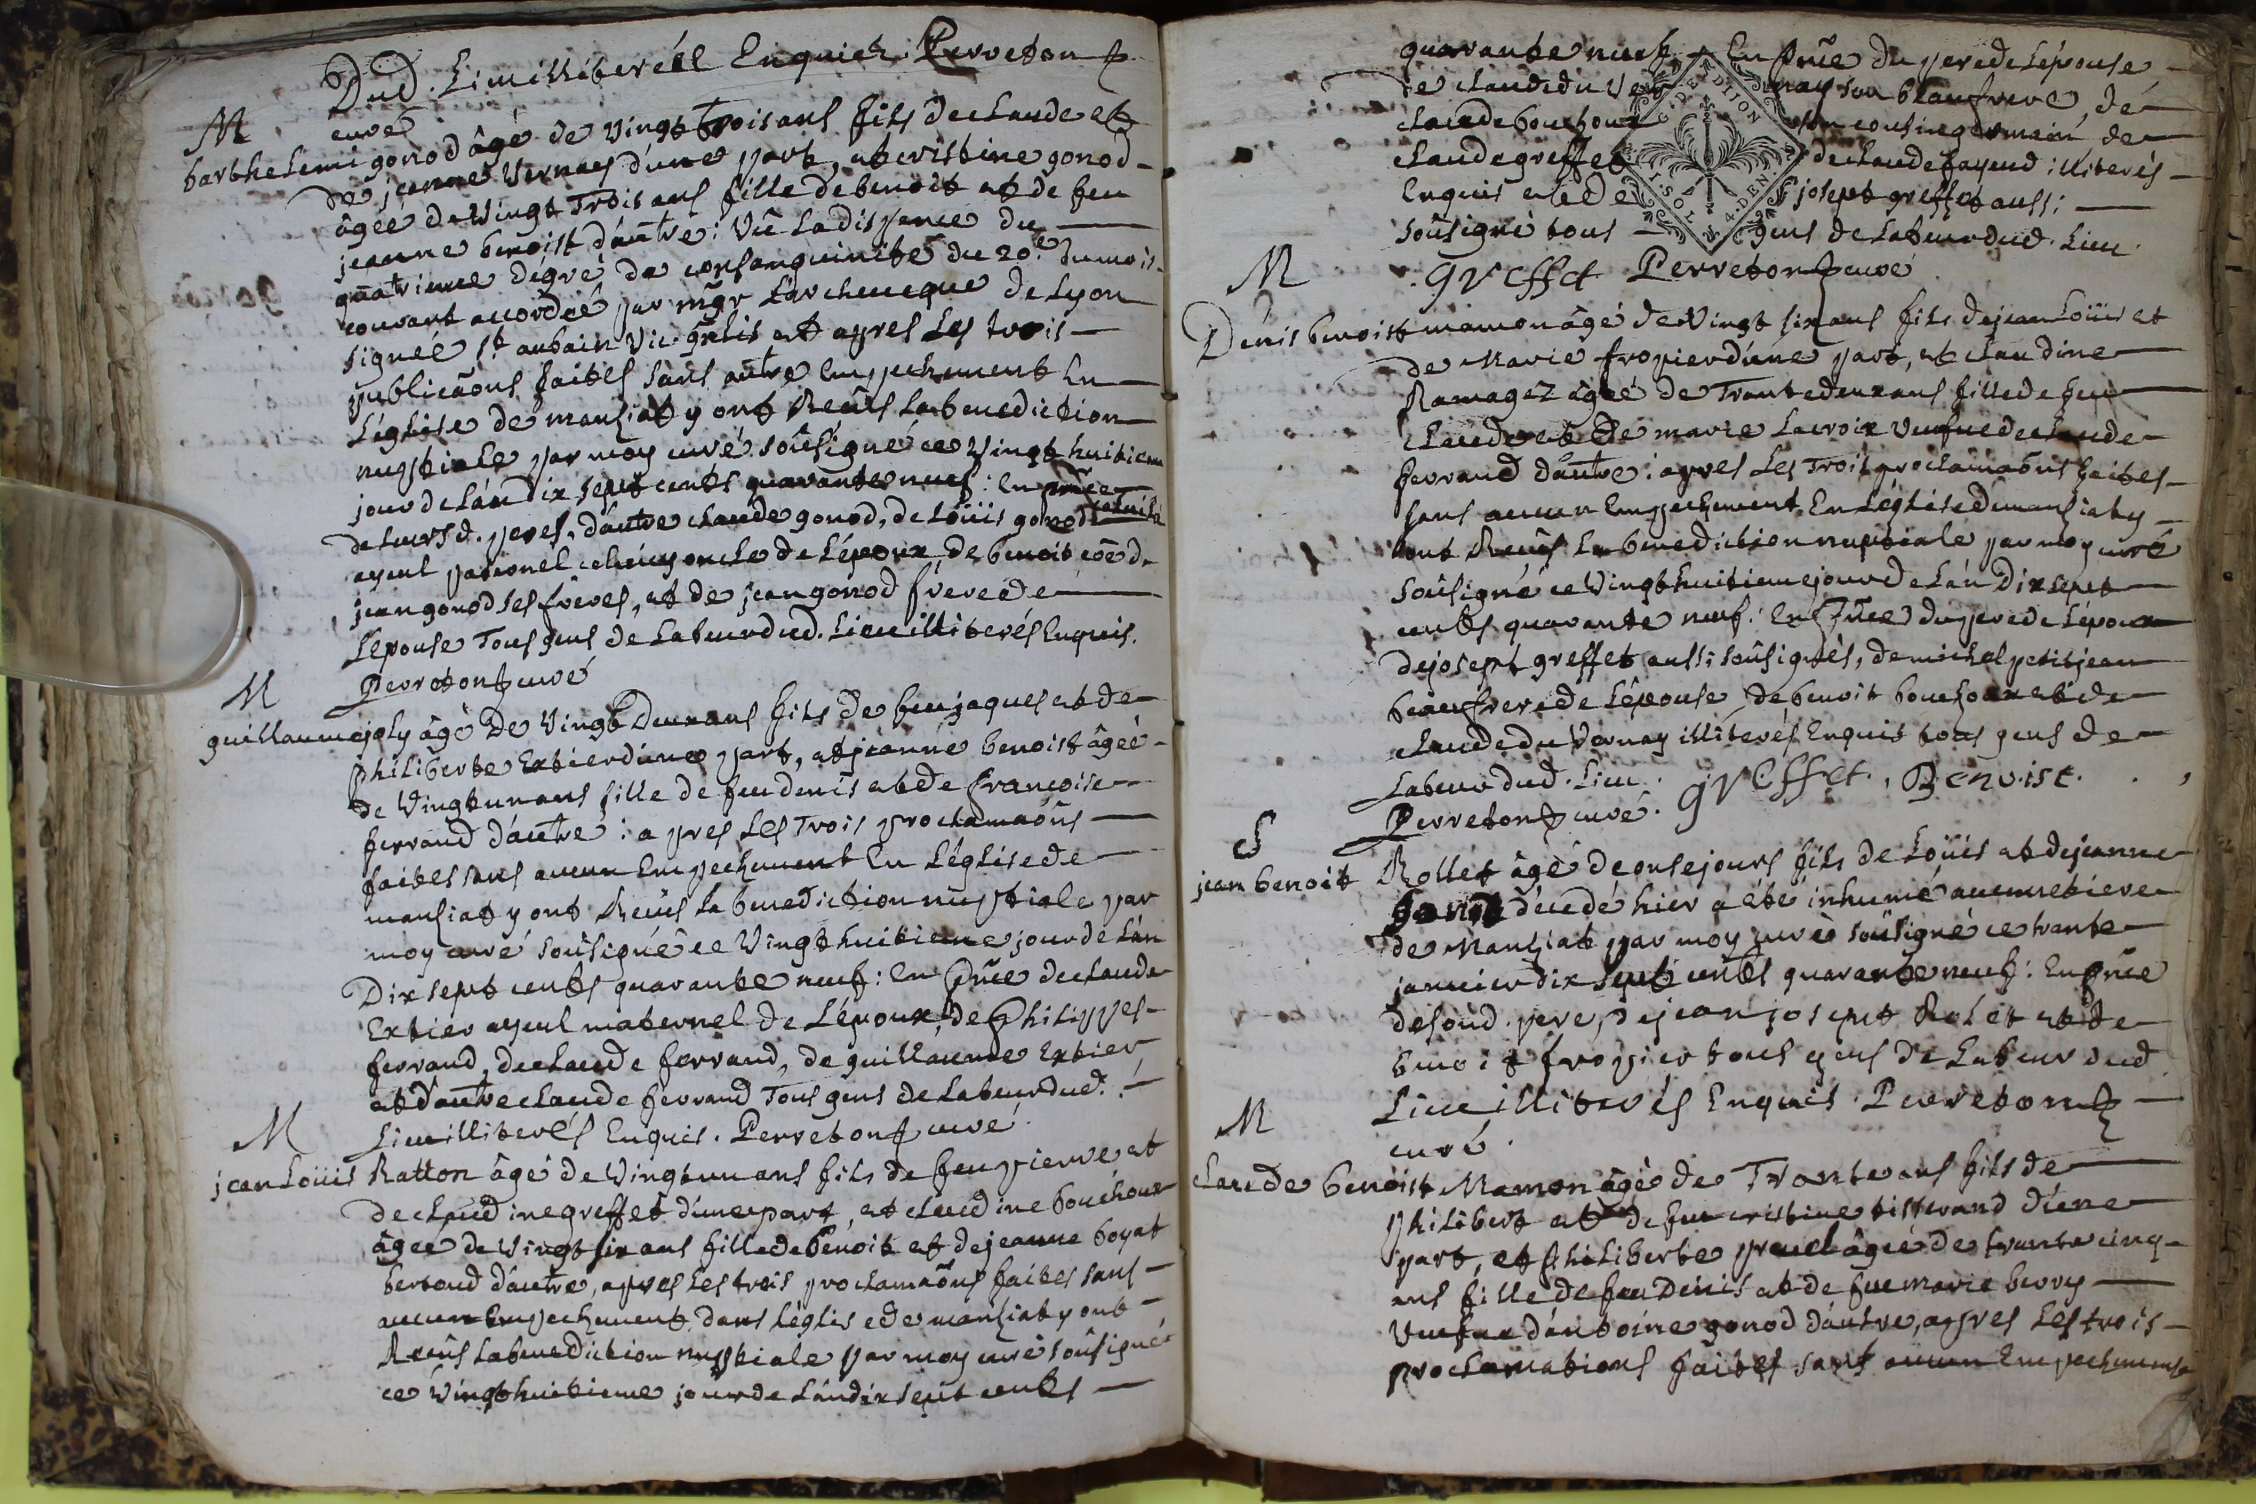 Dud. Lieu illiterés Enquis. Perreton
curé
M
barthelemi gonod âgé de vingt trois ans fils de claude et
de jeanne Vernay d'une part, et cristine gonod
âgée de vingt trois ans fille de benoit et de feu
jeanne benoist d'autre: Vû la dispence du
quatrieme dégré de consanguinité du 20e du mois
courant accordée par mgr L'archeveque de Lyon
signée st aubain vic. gnlis et apres Les trois
publicaons faites sans autre Empechement En
L'église de manziat y ont Receüs La benediction
nuptiale par moy curé soûsigné ce vingt huitieme
jour de L'an dix sept cents quarante neuf: En pñce
de leurs d. peres, d'autre claude gonod, de Loüis gonod
ayeul paternel celuicy oncle de L'époux, de benoit et de
jean gonod ses freres, et de jean gonod frere de
L'épouse Tous gens de Labeur dud. Lieu illiterés Enquis.
Perreton curé
M
guillaume joly âgé De vingt Deux ans fils de feu jaques et de
philiberte Extier d'une part, et jeanne benoist âgée
de vingt un ans fille de feu denis et de françoise
ferrand d'autre: apres Les Trois proclamaõns
faites sans aucun Empechement En L'église de
manziat y ont Receüs La benediction nuptiale par
moy curé soûsigné ce vingt huitieme jour de L'an
Dix sept cents quarante neuf: En pñce de claude
Extier ayeul maternel de L'époux, de philippes
ferrand, de claude ferrand, de guillaume Extier
et d'autre claude ferrand Tous gens de Labeur dud.
Lieu illiterés Enquis. Perreton curé
M
jean Loüis Ratton âgé de vingt un ans fils de feu pierre et
de claudine greffet d'une part, et claudine bouchoux
âgée de vingt six ans fille de benoit et de jeanne boyat
bertoud d'autre, apres Les trois proclamaõns faites sans
aucun Empechement dans L'église de manziat y ont
Receüs La benediction nuptiale par moy curé soûsigné
ce vingt huitieme jour de L'an dix sept cents
quarante neuf En pñce du pere de L'épouse
de claude du Vernay son beaufrere, de
claude bouchoux son cousin germain de
claude greffet de claude fayend illiterés
Enquis et de josept greffet aussi
soûsigné tous gens de Labeur dud. Lieu
G. DE DIJON
1. SOL 4. DEN.
greffet Perreton curé
M
Denis benoist mamon âgé de vingt six ans fils de jean Loüis et
de Marie fropier d'une part, et claudine
Ramagez âgée de Trante deux ans fille de feu
claude et De marie Lacroix veufue de claude
ferrand d'autre: apres Les Trois proclamaõns faites
sans aucun Empechement En L'église de manziat y
ont Receüs La benediction nuptiale par moy curé
soûsigné ce vingt huitieme jour de L'an Dix sept
cents quarante neuf: En pñce du pere de L'époux
de josept greffet aussi soûsignés, de michel petitjean
beaufrere de L'épouse, de benoit bouchoux et de
claude du Vernay illiterés Enquis tous gens de
Labeur dud. Lieu. greffet. Benoist.
Perreton curé.
S
jean benoit Rollet âgé de onse jours fils de Loüis et de jeanne
gonod décedé hier a été inhumé au cimetiere
de Manziat par moy curé soûsigné ce trante
janvier dix sept cents quarante neuf: En pñce
de son d. pere, de jean josept Rolet et de
benoit fropier tous gens de Labeur dud
Lieu illiterés Enquis. Perreton
curé.
M
claude benoist Mamon âgé de Trante ans fils de
philibert et de feue cristine tisserand d'une
part, et philiberte preuel âgée de trante cinq
ans fille de feu Denis et de feue marie berry
veufue d'antoine gonod d'autre, apres Les trois
proclamations faites sans aucun Empechement